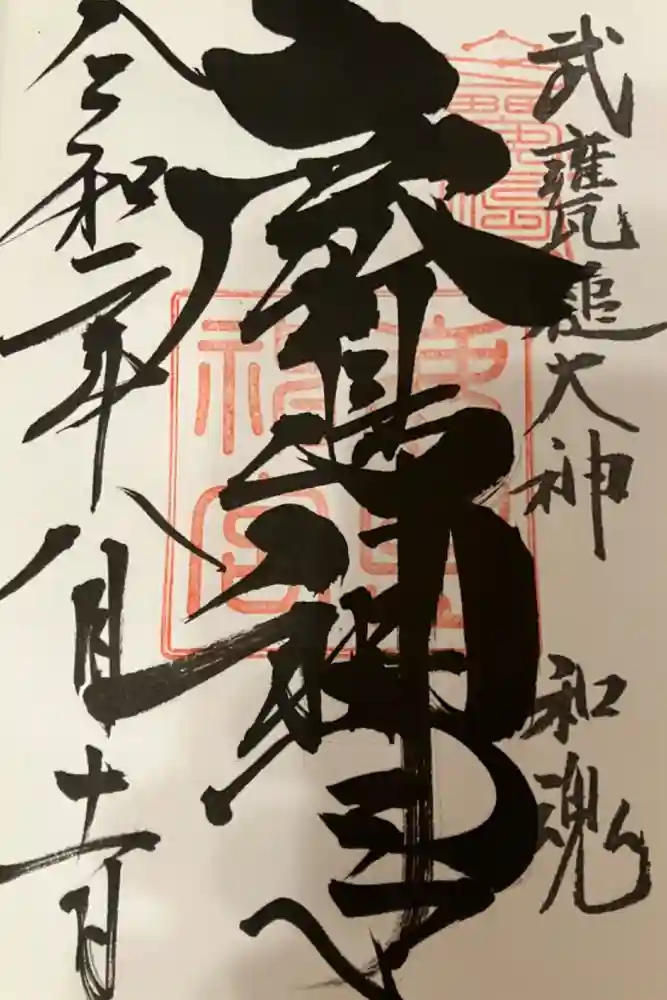 武甕槌大神　和魂
鹿島神宮
令和二年八月十一日